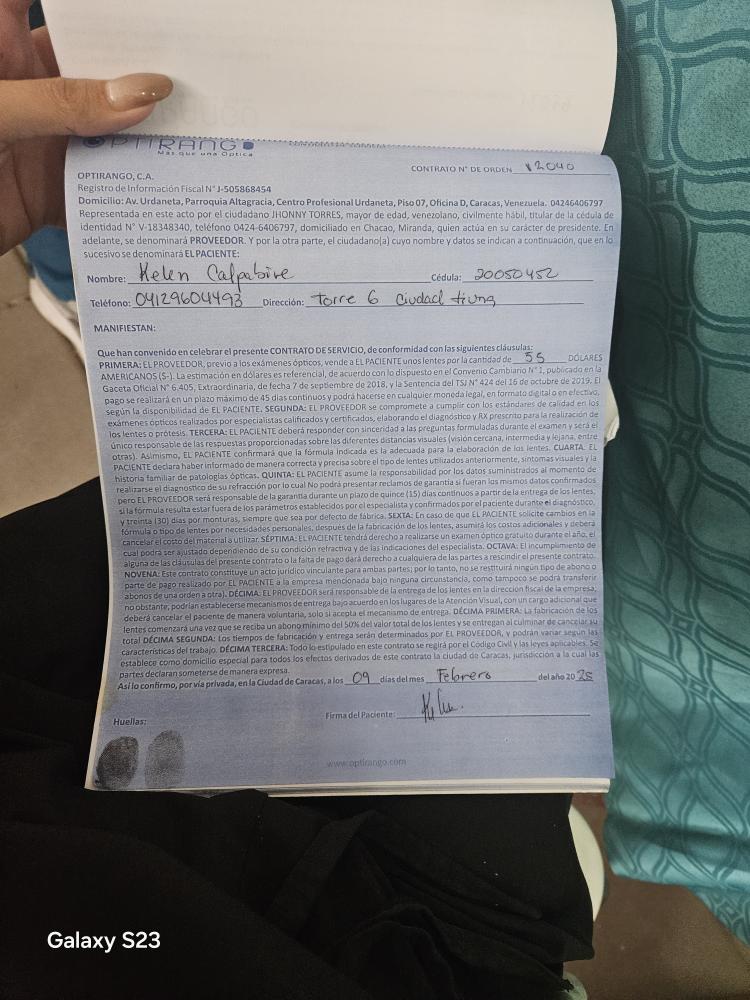 OPTIRANGO
Más que una Óptica
CONTRATO N° DE ORDEN 12040
OPTIRANGO, C.A.
Registro de Información Fiscal N° J-505868454
Domicilio: Av. Urdaneta, Parroquia Altagracia, Centro Profesional Urdaneta, Piso 07, Oficina D, Caracas, Venezuela. 04246406797
Representada en este acto por el ciudadano JHONNY TORRES, mayor de edad, venezolano, civilmente hábil, titular de la cédula de
identidad N° V-18348340, teléfono 0424-6406797, domiciliado en Chacao, Miranda, quien actúa en su carácter de presidente. En
adelante, se denominará PROVEEDOR. Y por la otra parte, el ciudadano(a) cuyo nombre y datos se indican a continuación, que en lo
sucesivo se denominará EL PACIENTE:
Nombre: Kelen Cédula: 20050452
Teléfono: 04129604493 Dirección: torre 6 Ciudad tiuna
MANIFIESTAN:
Que han convenido en celebrar el presente CONTRATO DE SERVICIO, de conformidad con las siguientes cláusulas:
PRIMERA: EL PROVEEDOR, previo a los exámenes ópticos, vende a EL PACIENTE unos lentes por la cantidad de 55 DÓLARES
AMERICANOS ($-). La estimación en dólares es referencial, de acuerdo con lo dispuesto en el Convenio Cambiario N° 1, publicado en la
Gaceta Oficial N° 6.405, Extraordinaria, de fecha 7 de septiembre de 2018, y la Sentencia del TSJ N° 424 del 16 de octubre de 2019. El
pago se realizará en un plazo máximo de 45 días continuos y podrá hacerse en cualquier moneda legal, en formato digital o en efectivo,
según la disponibilidad de EL PACIENTE. SEGUNDA: EL PROVEEDOR se compromete a cumplir con los estándares de calidad en los
exámenes ópticos realizados por especialistas calificados y certificados, elaborando el diagnóstico y RX prescrito para la realización de
los lentes o prótesis. TERCERA: EL PACIENTE deberá responder con sinceridad a las preguntas formuladas durante el examen y será el
único responsable de las respuestas proporcionadas sobre las diferentes distancias visuales (visión cercana, intermedia y lejana, entre
otras). Asimismo, EL PACIENTE confirmará que la fórmula indicada es la adecuada para la elaboración de los lentes. CUARTA. EL
PACIENTE declara haber informado de manera correcta y precisa sobre el tipo de lentes utilizados anteriormente, síntomas visuales y la
historia familiar de patologías ópticas. QUINTA: EL PACIENTE asume la responsabilidad por los datos suministrados al momento de
realizarse el diagnóstico de su refracción por lo cual No podrá presentar reclamos de garantía si fueran los mismos datos confirmados
pero EL PROVEEDOR será responsable de la garantía durante un plazo de quince (15) días continuos a partir de la entrega de los lentes,
si la fórmula resulta estar fuera de los parámetros establecidos por el especialista y confirmados por el paciente durante el diagnóstico,
y treinta (30) días por monturas, siempre que sea por defecto de fábrica. SEXTA: En caso de que EL PACIENTE solicite cambios en la
fórmula o tipo de lentes por necesidades personales, después de la fabricación de los lentes, asumirá los costos adicionales y deberá
cancelar el costo del material a utilizar. SÉPTIMA: EL PACIENTE tendrá derecho a realizarse un examen óptico gratuito durante el año, el
cual podrá ser ajustado dependiendo de su condición refractiva y de las indicaciones del especialista. OCTAVA: El incumplimiento de
alguna de las cláusulas del presente contrato o la falta de pago dará derecho a cualquiera de las partes a rescindir el presente contrato.
NOVENA: Este contrato constituye un acto jurídico vinculante para ambas partes; por lo tanto, no se restituirá ningún tipo de abono o
parte de pago realizado por EL PACIENTE a la empresa mencionada bajo ninguna circunstancia, como tampoco se podrá transferir
abonos de una orden a otra). DÉCIMA: EL PROVEEDOR será responsable de la entrega de los lentes en la dirección fiscal de la empresa;
no obstante, podrían establecerse mecanismos de entrega bajo acuerdo en los lugares de la Atención Visual, con un cargo adicional que
deberá cancelar el paciente de manera voluntaria, solo si acepta el mecanismo de entrega. DÉCIMA PRIMERA: La fabricación de los
lentes comenzará una vez que se reciba un abono mínimo del 50% del valor total de los lentes y se entregan al culminar de cancelar su
total DÉCIMA SEGUNDA: Los tiempos de fabricación y entrega serán determinados por EL PROVEEDOR, y podrán variar según las
características del trabajo. DÉCIMA TERCERA: Todo lo estipulado en este contrato se regirá por el Código Civil y las leyes aplicables. Se
establece como domicilio especial para todos los efectos derivados de este contrato la ciudad de Caracas, jurisdicción a la cual las
partes declaran someterse de manera expresa.
Así lo confirmo, por vía privada, en la Ciudad de Caracas, a los 09 días del mes Febrero del año 2025
Firma del Paciente:
Huellas:
www.optirango.com
Galaxy S23